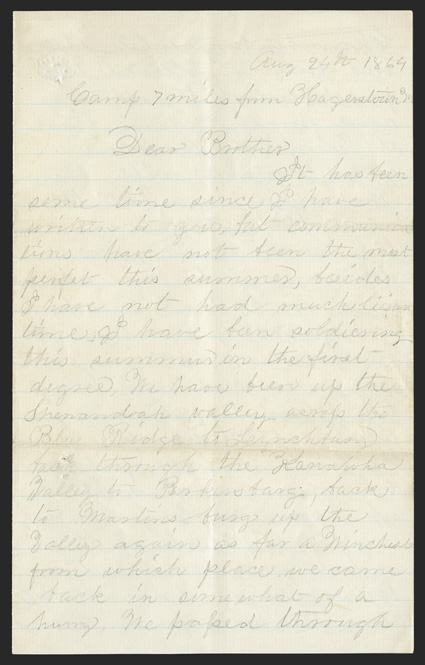 Aug 24th 1864
Camp 7 miles from Hagerstown
Dear Brother
It has been
some time since I have
written to you, but communica
tions have not been the most
perfet this summer, besides
I have not had much
time, I have been soldiering
this summer in the first
degree, We have been up the
Shenandoah valley across the
Blue Ridge to Lynchburg
back through the Kanawha
Valley to Perkinsburg, back
to Martinsburg up the
Valley again as far a Winchest
from which place we came
back in somewhat of a
hurry, We passed through